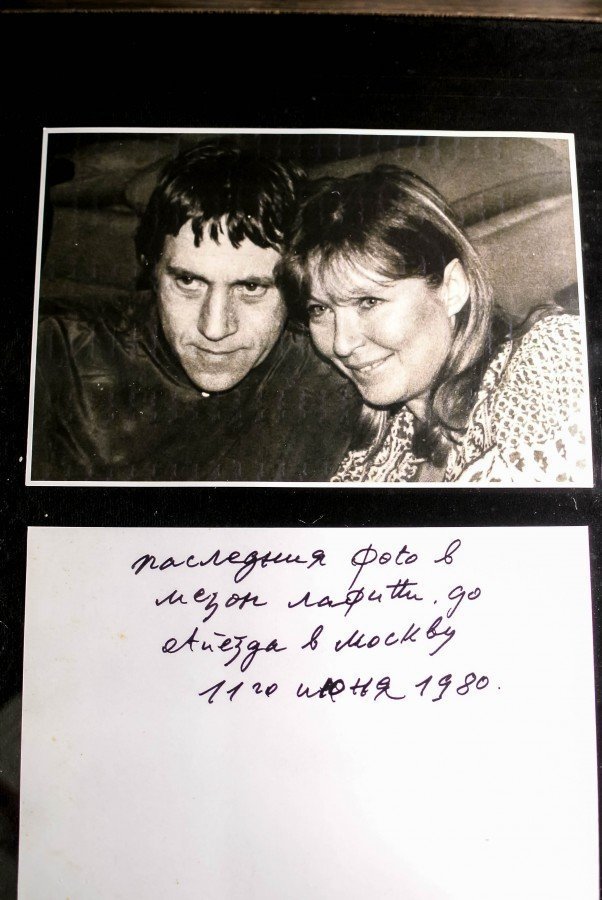 последния фото в
мезон лафитти. до
отйезда в москву
11го июня 1980.